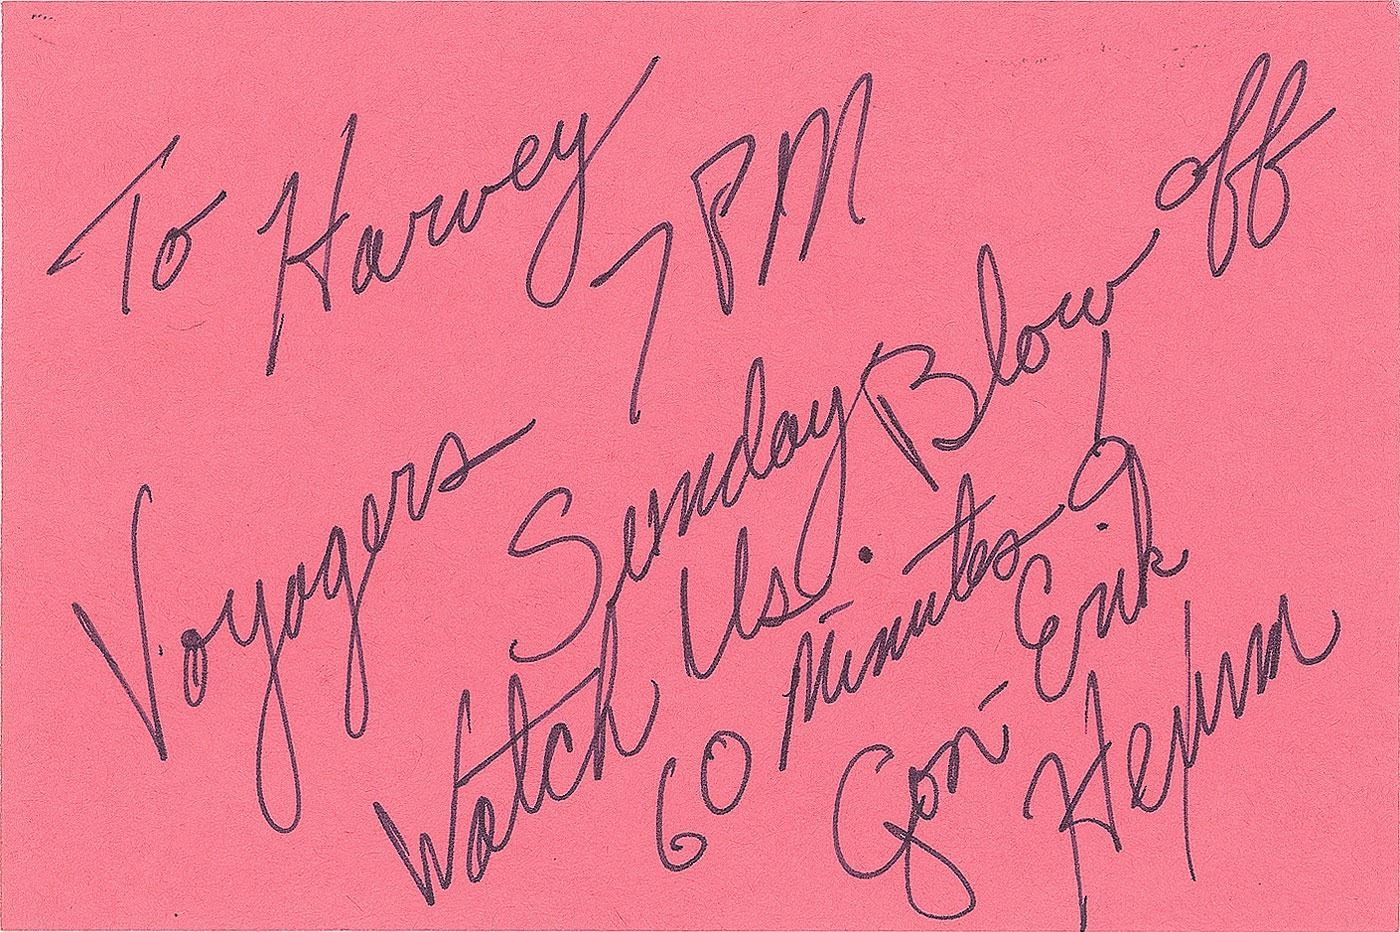 To Harvey
7 PM
Voyagers
Sunday
Watch Us.
Blow off
60 Minutes
Jon-Erik
Hexum